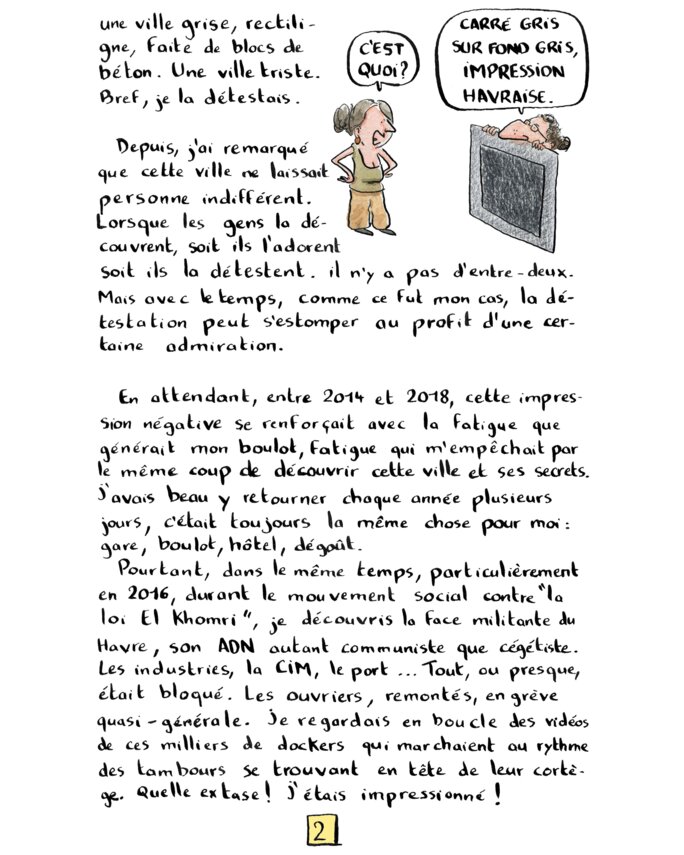 une ville grise, rectili-
gne, faite de blocs de
béton. Une ville triste.
Bref, je la détestais.
C'EST
QUOI?
CARRÉ GRIS
SUR FOND GRIS,
IMPRESSION
HAVRAISE.
Depuis, j'ai remarqué
que cette ville ne laissait
personne indifférent.
Lorsque les gens la dé-
couvrent, soit ils l'adorent
soit ils la détestent. il n'y a pas d'entre-deux.
Mais avec le temps, comme ce fut mon cas, la dé-
testation peut s'estomper au profit d'une cer-
taine admiration.
En attendant, entre 2014 et 2018, cette impres-
sion négative se renforçait avec la fatigue que
générait mon boulot, fatigue qui m'empêchait par
le même coup de découvrir cette ville et ses secrets.
J'avais beau y retourner chaque année plusieurs
jours, c'était toujours la même chose pour moi :
gare, boulot, hôtel, dégoût.
Pourtant, dans le même temps, particulièrement
en 2016, durant le mouvement social contre "la
loi El Khomri", je découvris la face militante du
Havre, son ADN autant communiste que cégétiste.
Les industries, la CiM, le port ... Tout, ou presque,
était bloqué. Les ouvriers, remontés, en grève
quasi-générale. Je regardais en boucle des vidéos
de ces milliers de dockers qui marchaient au rythme
des tambours se trouvant en tête de leur cortè-
ge. Quelle extase ! J'étais impressionné !
2